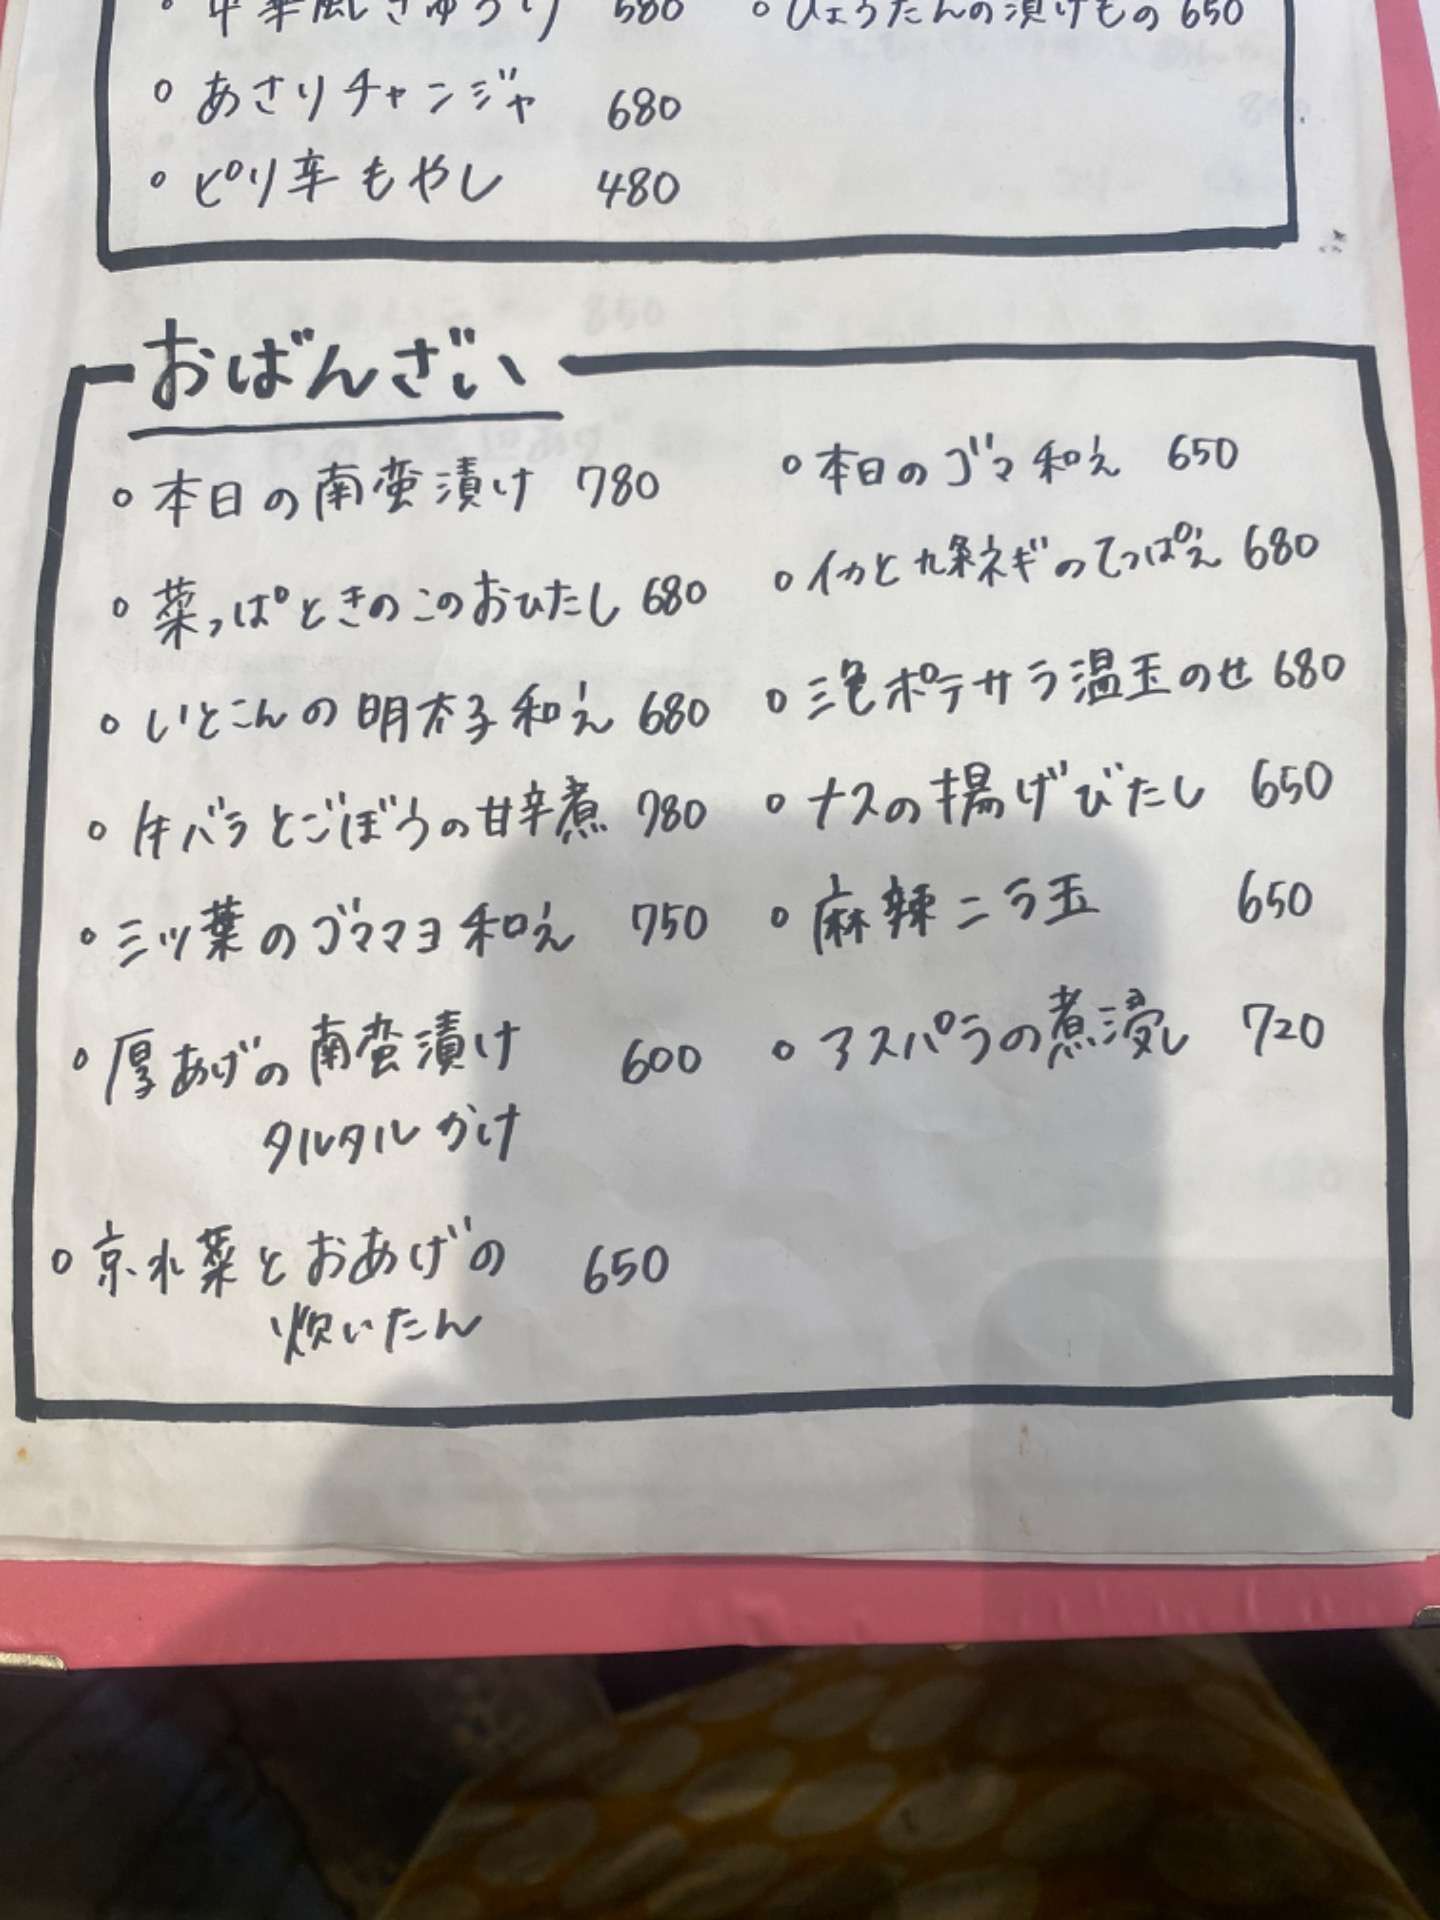 中華風きゅうり 580
・ひょうたんの漬けもの 650
・あさりチャンジャ 680
・ピリ辛もやし 480
おばんざい
・本日の南蛮漬け 780
・菜っぱときのこのおひたし 680
・いとこんの明太子和え 680
・牛バラとごぼうの甘辛煮 780
・三ツ葉のゴママヨ和え 750
・厚あげの南蛮漬け 600
タルタルかけ
・京水菜とおあげの 650
炊いたん
・本日のゴマ和え 650
・イカと九条ネギのてっぱえ 680
・三色ポテサラ温玉のせ 680
・ナスの揚げびたし 650
・麻辣ニラ玉 650
・アスパラの煮浸し 720